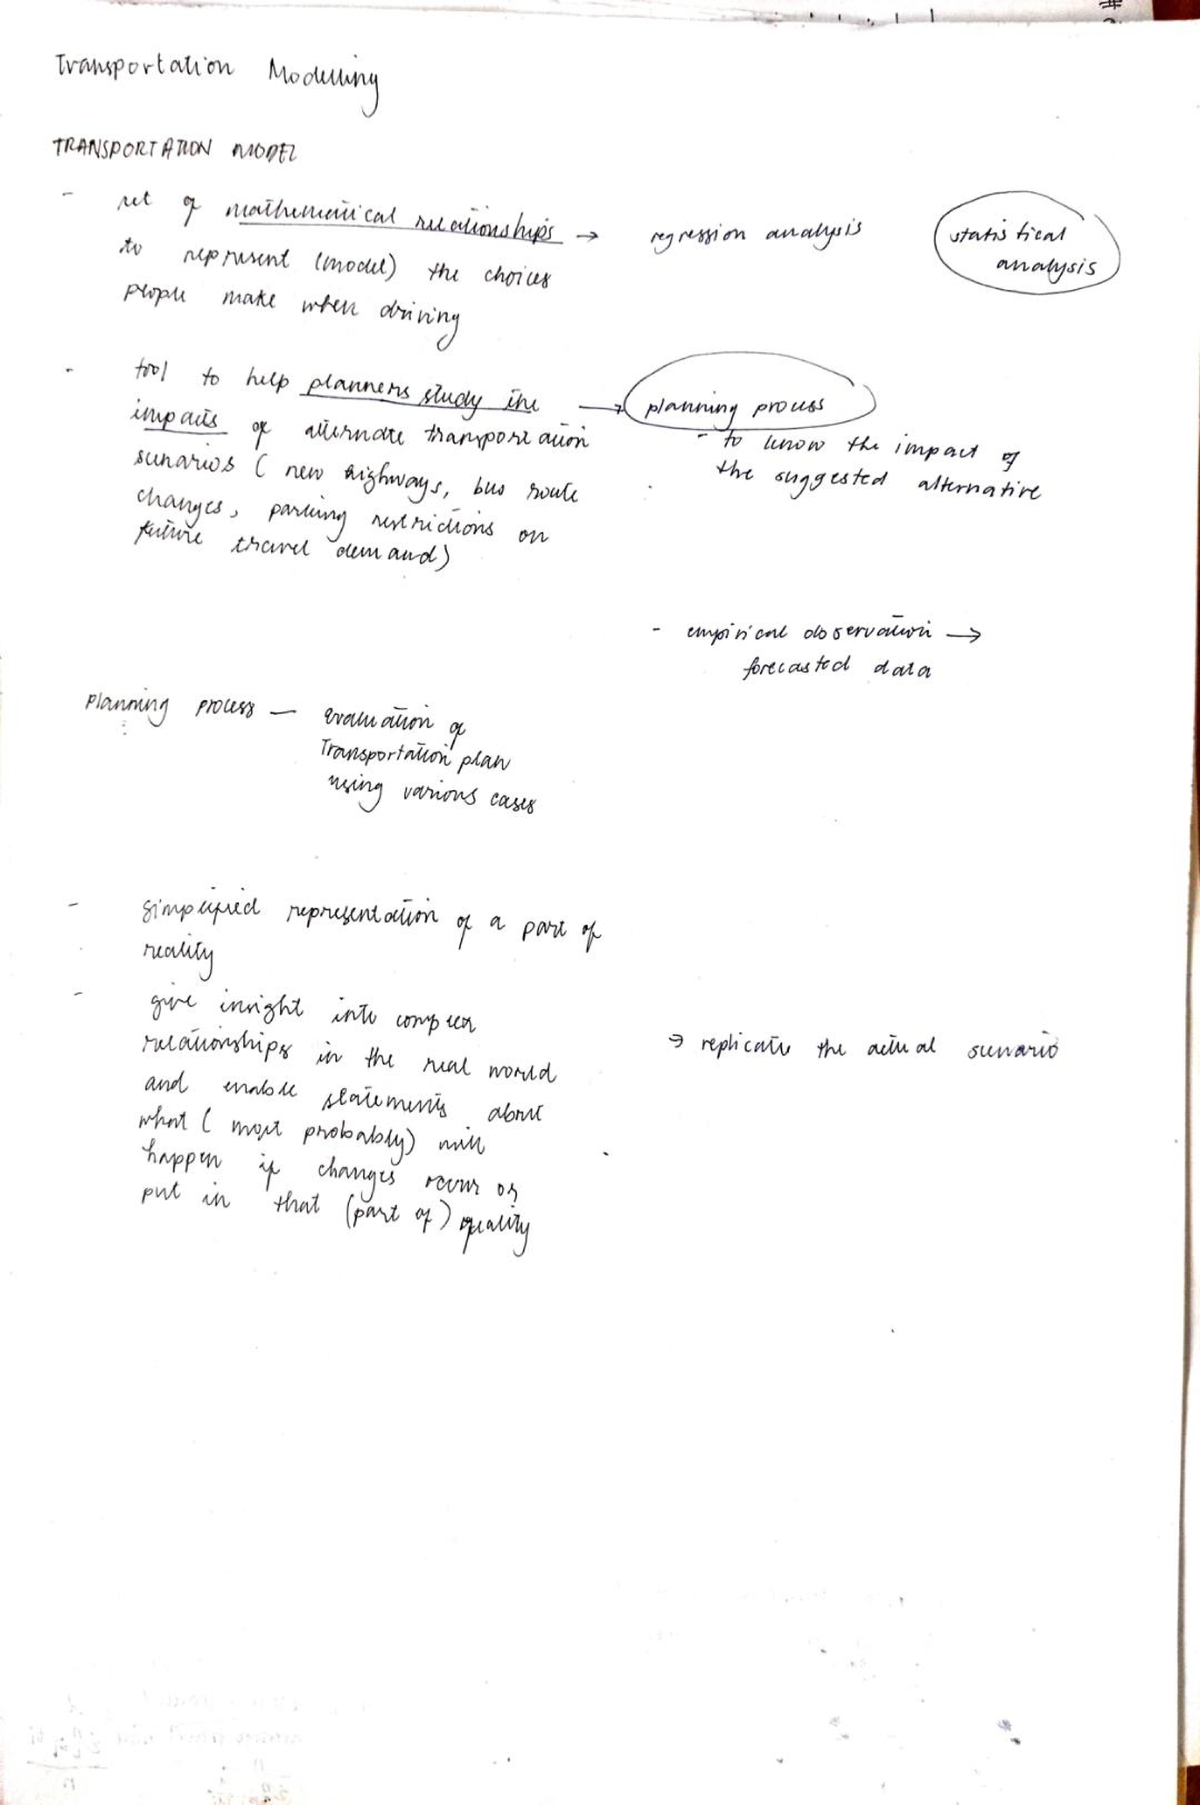 Transportation Modelling
TRANSPORTATION MODEL
- set of mathematical relationships → regression analysis statistical
analysis
to represent (model) the choices
people make when driving
- tool to help planners study the → planning process
impacts of alternate transportation - to know the impact of
scenarios ( new highways, bus route the suggested alternative
changes, parking restrictions on
future travel demand)
- empirical observation →
forecasted data
Planning process — evaluation of
Transportation plan
using various cases
- simplified representation of a part of
reality
- give insight into complex
relationships in the real world → replicate the actual scenario
and enable statements about
what ( most probably) will
happen if changes occur or
put in that (part of)